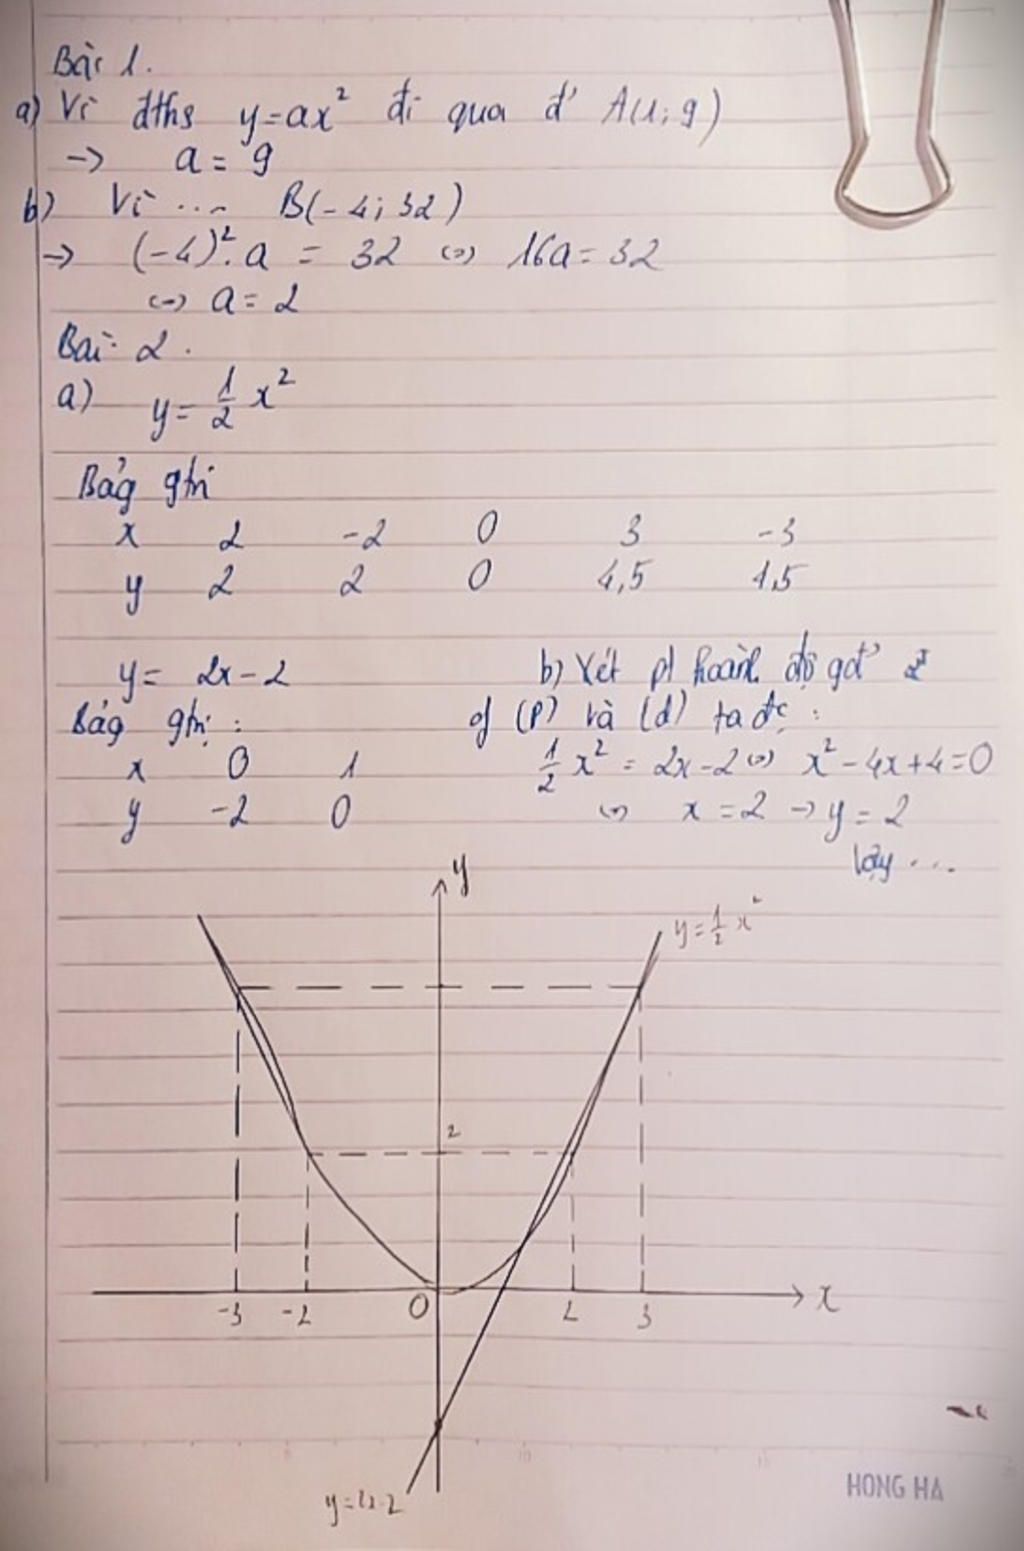 Bài 1.
a) Vì đths y=ax² đi qua đ' A(1; 9)
→ a = 9
b) Vì ... B(-4; 32)
→ (-4)².a = 32 ⇔ 16a = 32
⇔ a = 2
Bài 2.
a) y = 1/2 x²
Bảg gtrị
x 2 -2 0 3 -3
y 2 2 0 4,5 4,5
y = 2x - 2
Bảg gtrị :
x 0 1
y -2 0
b) Xét pt hoành độ gđ'
of (P) và (d) ta đc :
1/2 x² = 2x - 2 ⇔ x² - 4x + 4 = 0
⇔ x = 2 → y = 2
Vậy ...
y
y = 1/2 x²
2
-3 -2 O 2 3 x
y = 2x - 2
HONG HA